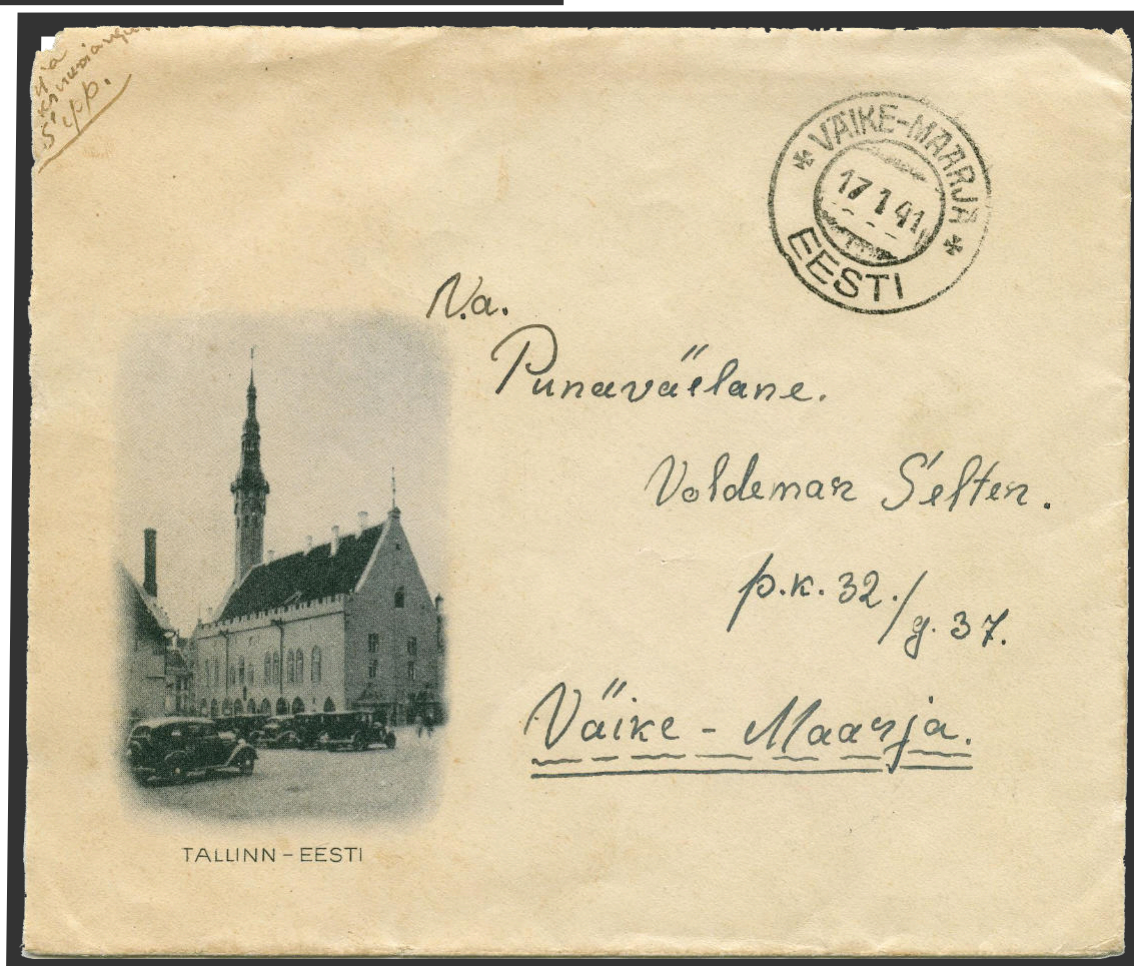 VÄIKE-MAARJA
17 1 41
EESTI
N.a.
Punaväelane.
Voldemar Selter.
p.k. 32./g. 37.
Väike - Maarja.
TALLINN - EESTI